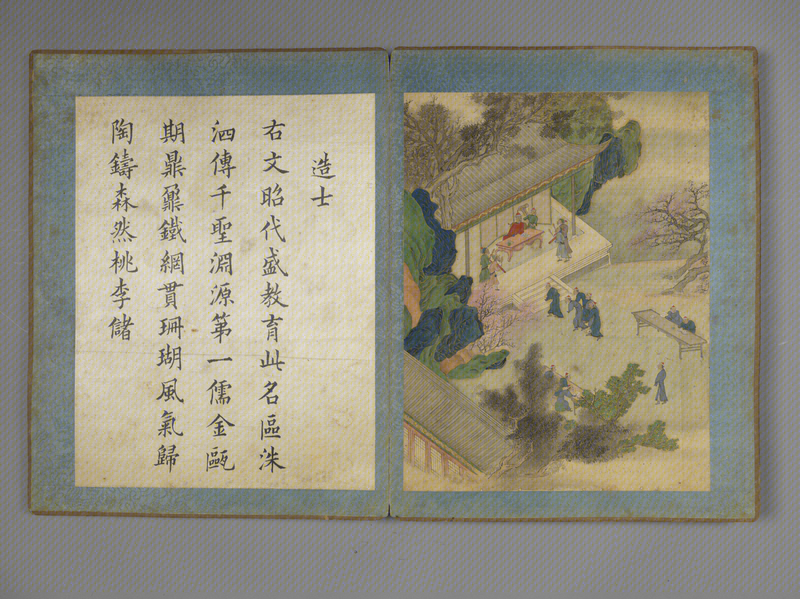 造士
右文昭代盛教育此名區洙
泗傳千聖淵源第一儒金甌
期鼎鼐鐵網貫珊瑚風氣歸
陶鑄森然桃李儲